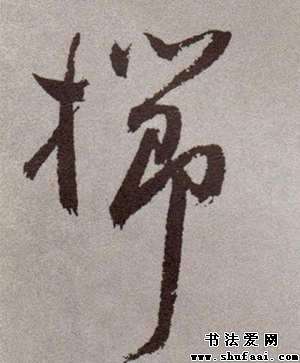 櫛
书法爱网
www.shufaai.com